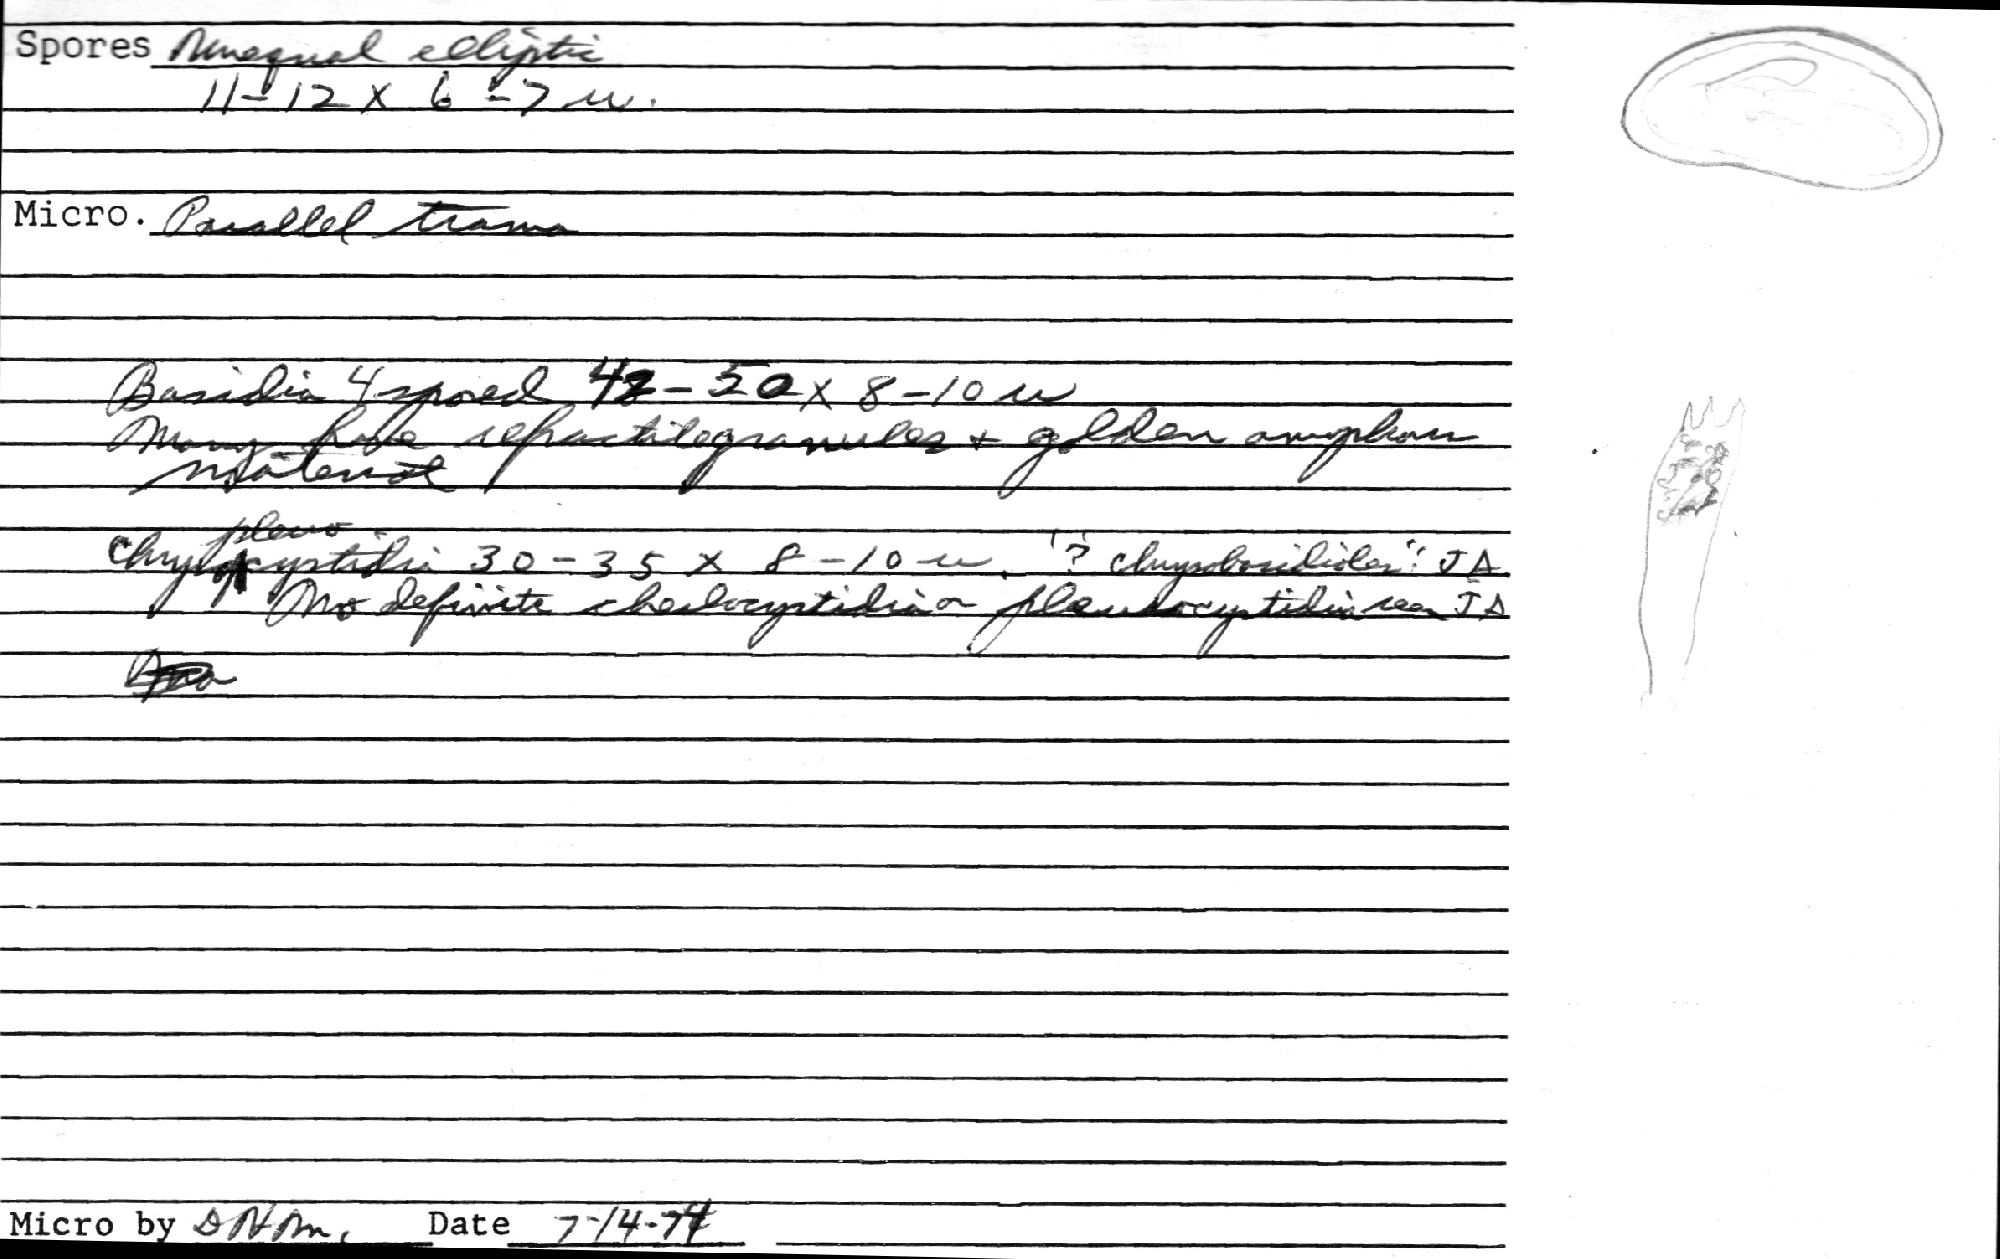 Spores Unequal elliptic
11-12 x 6-7 u.
Micro. Parallel trama
Basidia 4 spored 42-50 x 8-10 u
Many have refractile granules + golden amorphous
material
pleuro
Chrysocystidia 30-35 x 8-10 u. "? chrysobasidioles": JA
No definite cheilocystidia or pleurocystidia seen JA
Micro by DHM. Date 7-14-74